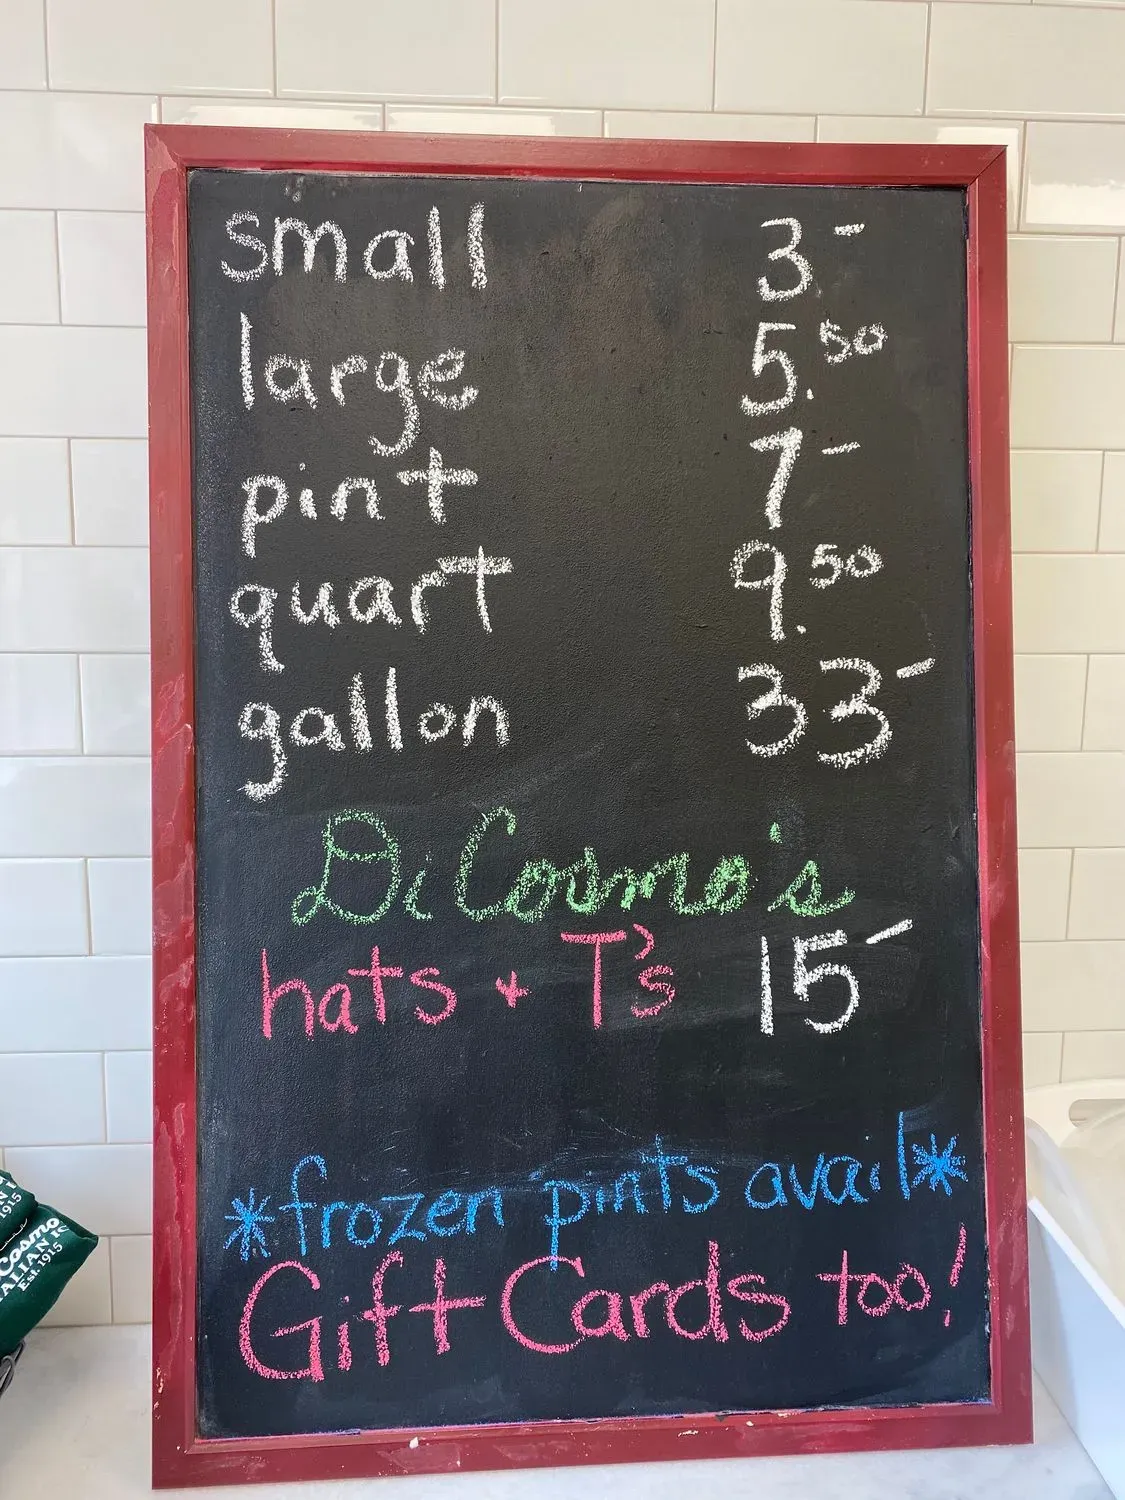 small 3-
large 5.50
pint 7-
quart 9.50
gallon 33-
DiCosmo's
hats + T's 15-
*frozen pints avail*
Gift Cards too!
1915
Cosmo
ALIAN IC
Est. 1915